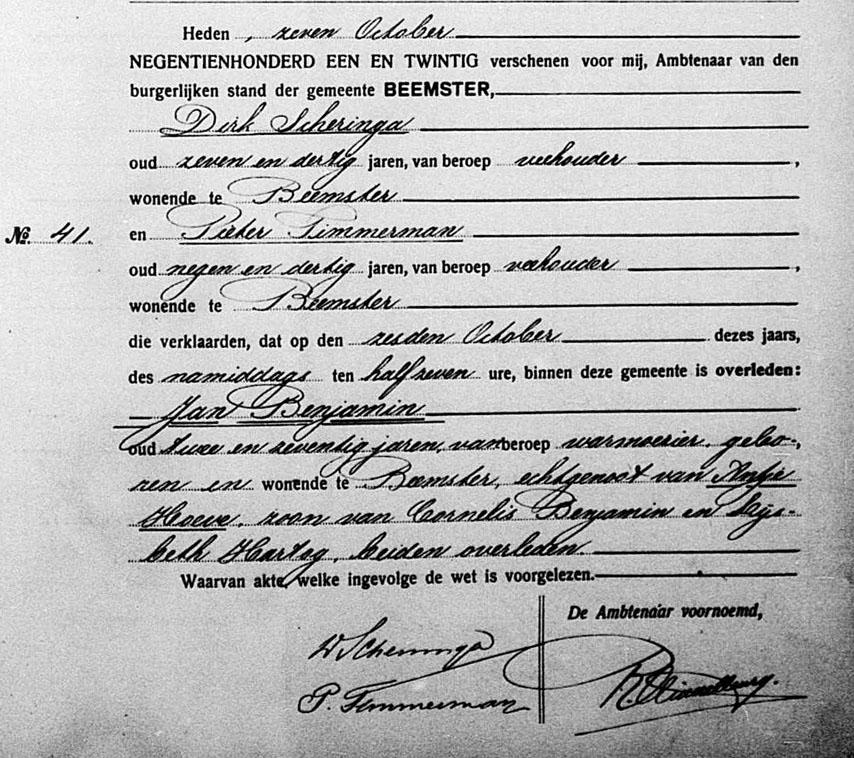 Heden , zeven October
NEGENTIENHONDERD EEN EN TWINTIG verschenen voor mij, Ambtenaar van den
burgerlijken stand der gemeente BEEMSTER,
Dirk Scheringa
oud zeven en dertig jaren, van beroep veehouder ,
wonende te Beemster
No. 41. en Pieter Timmerman
oud negen en dertig jaren, van beroep veehouder ,
wonende te Beemster
die verklaarden, dat op den zesden October dezes jaars,
des namiddags ten half zeven ure, binnen deze gemeente is overleden:
Jan Benjamin
oud twee en zeventig jaren, van beroep warmoezier, gebo-,
ren en wonende te Beemster, echtgenoot van Antje
Hoeve, zoon van Cornelis Benjamin en Lijs-
beth Hartog, beiden overleden.
Waarvan akte, welke ingevolge de wet is voorgelezen.
De Ambtenaar voornoemd,
D Scheringa
P. Timmerman